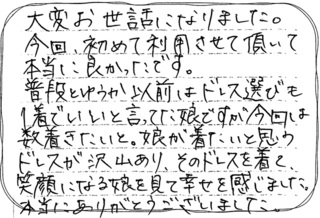 大変お世話になりました。
今回、初めて利用させて頂いて
本当に良かったです。
普段とゆうか以前はドレス選びも
1着でいいと言ってた娘ですが今回は
数着きたいと。娘が着たいと思う
ドレスが沢山あり、そのドレスを着て、
笑顔になる娘を見て幸せを感じました。
本当にありがとうございました。